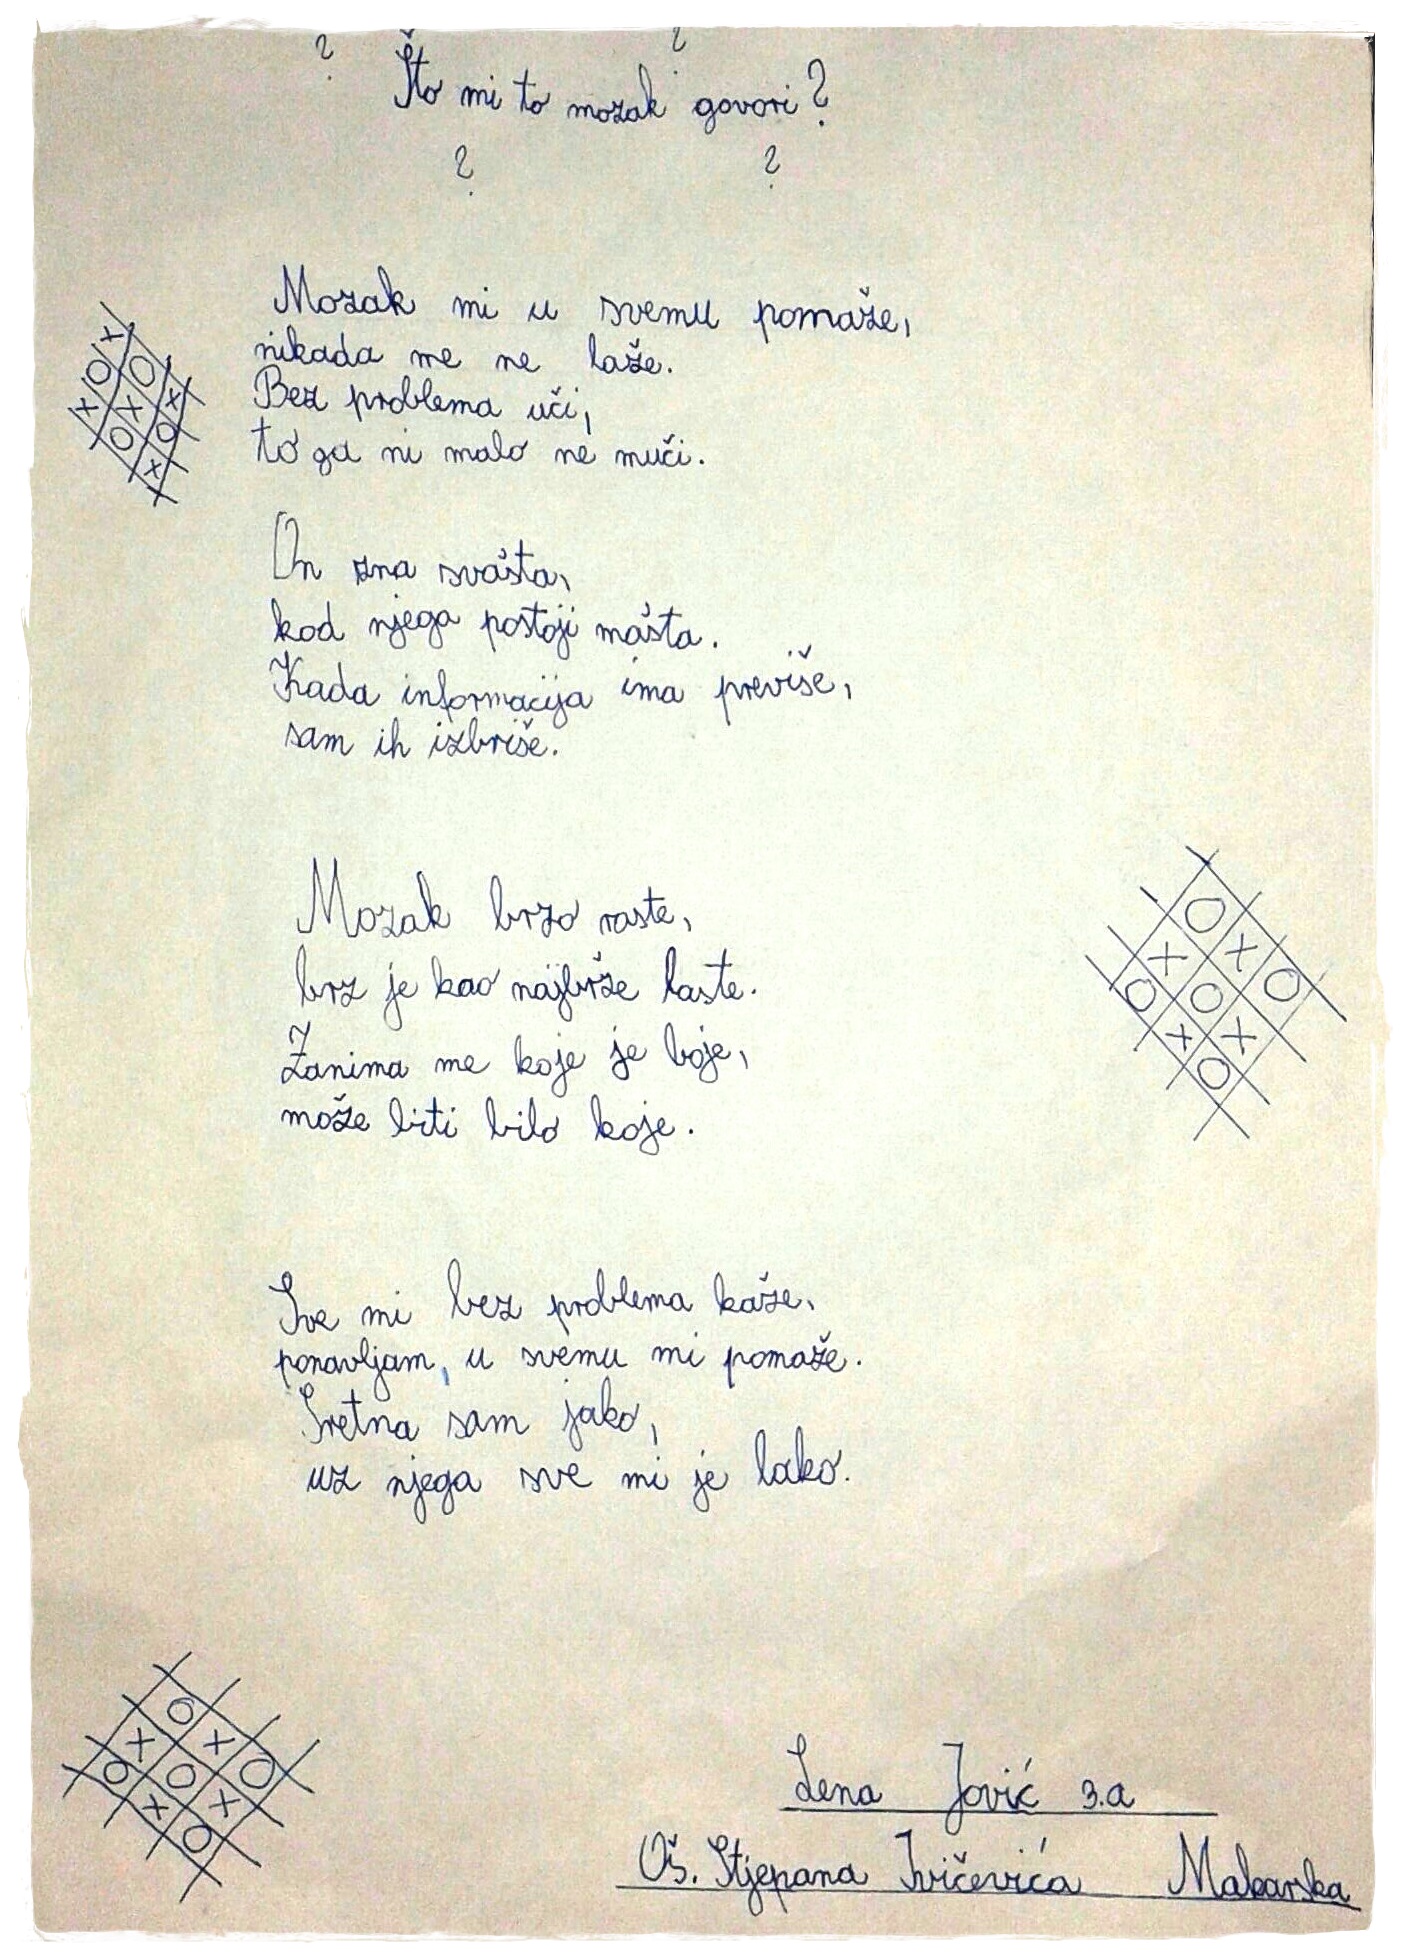 ? ?
Što mi to mozak govori?
? ?
Mozak mi u svemu pomaže,
nikada me ne laže.
Bez problema uči,
to ga ni malo ne muči.
On zna svašta,
kod njega postoji mašta.
Kada informacija ima previše,
sam ih izbriše.
Mozak brzo raste,
brz je kao najbrže laste.
Zanima me koje je boje,
može biti bilo koje.
Sve mi bez problema kaže,
ponavljam, u svemu mi pomaže.
Sretna sam jako,
uz njega sve mi je lako.
Lena Jović 3.a
Oš. Stjepana Ivičevića Makarska